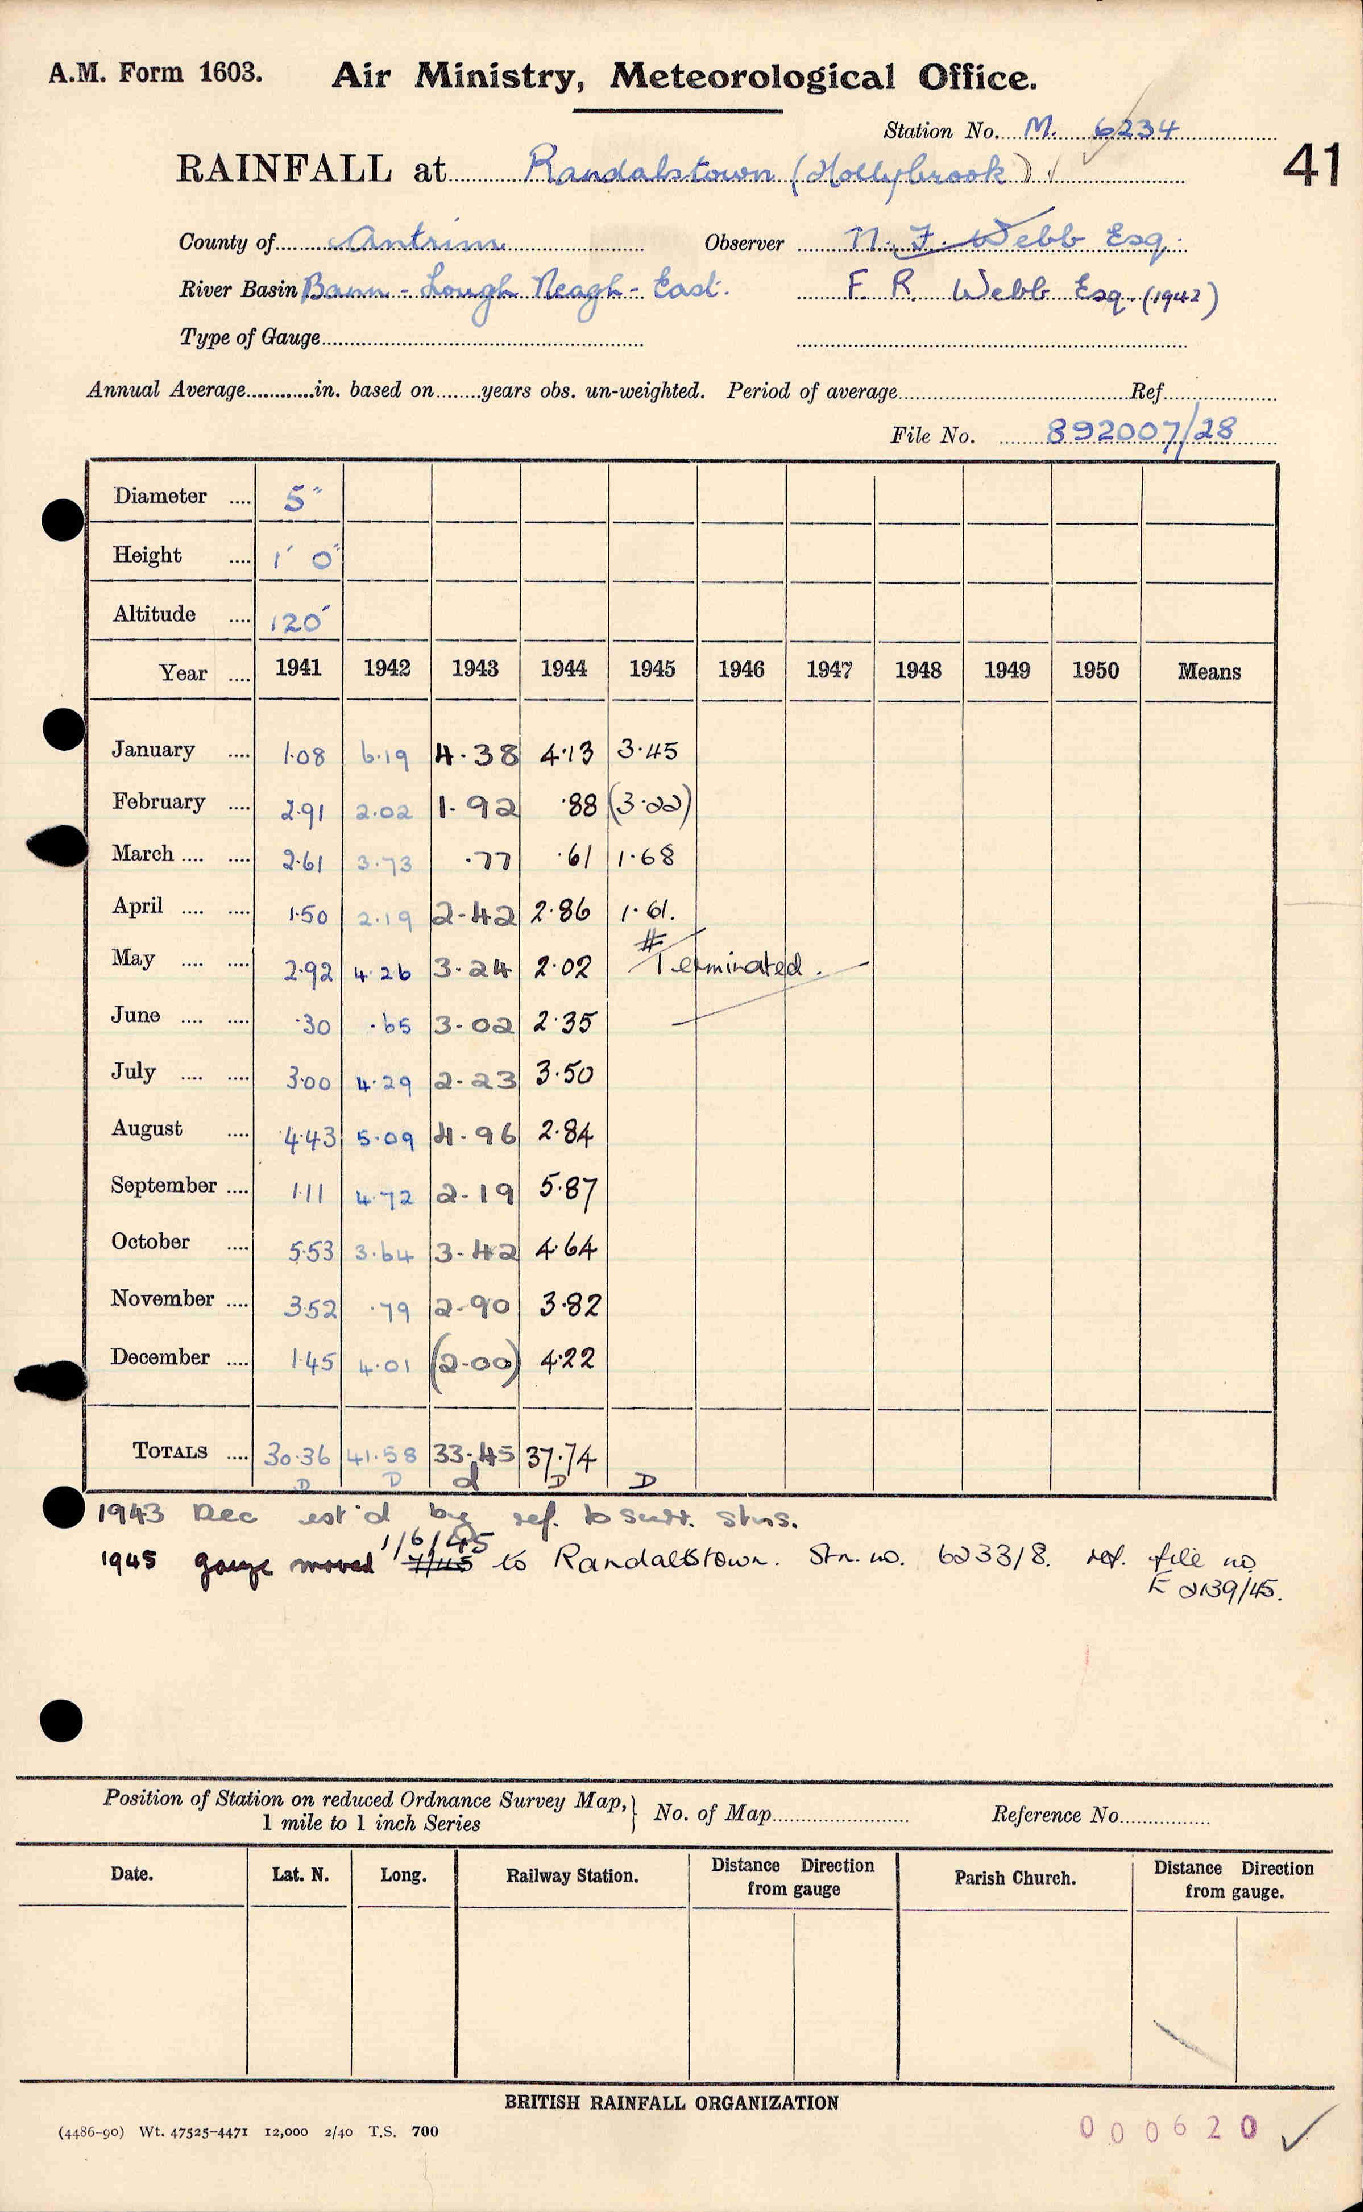 A.M. Form 1603. Air Ministry, Meteorological Office.
Station No. M. 6234
RAINFALL at Randalstown (Hollybrook) 41
County of Antrim Observer N. F. Webb Esq.
River Basin Bann - Lough Neagh - East. F. R. Webb Esq. (1942)
Type of Gauge
Annual Average in. based on years obs. un-weighted. Period of average Ref.
File No. 892007/28
Diameter .... 5"
Height .... 1' 0"
Altitude .... 120'
Year .... 1941 1942 1943 1944 1945 1946 1947 1948 1949 1950 Means
January .... 1.08 6.19 4.38 4.13 3.45
February .... 2.91 2.02 1.92 .88 (3.22)
March .... .... 2.61 3.73 .77 .61 1.68
April .... .... 1.50 2.19 2.42 2.86 1.61.
May .... .... 2.92 4.26 3.24 2.02 # Terminated.
June .... .... .30 .65 3.02 2.35
July .... .... 3.00 4.29 2.23 3.50
August .... 4.43 5.09 4.96 2.84
September .... 1.11 4.72 2.19 5.87
October .... 5.53 3.64 3.42 4.64
November .... 3.52 .79 2.90 3.82
December .... 1.45 4.01 (2.00) 4.22
TOTALS .... 30.36 41.58 33.45 37.74
D D d D D
1943 Dec est'd by ref. to surr. stns.
1/6/45
1945 gauge moved 7/45 to Randalstown. Stn. no. 6233/8. ref. file no
E 2139/45.
Position of Station on reduced Ordnance Survey Map,} No. of Map Reference No.
1 mile to 1 inch Series
Date. Lat. N. Long. Railway Station. Distance Direction from gauge Parish Church. Distance Direction from gauge.
BRITISH RAINFALL ORGANIZATION
(4486-90) Wt. 47525-4471 12,000 2/40 T.S. 700
000620